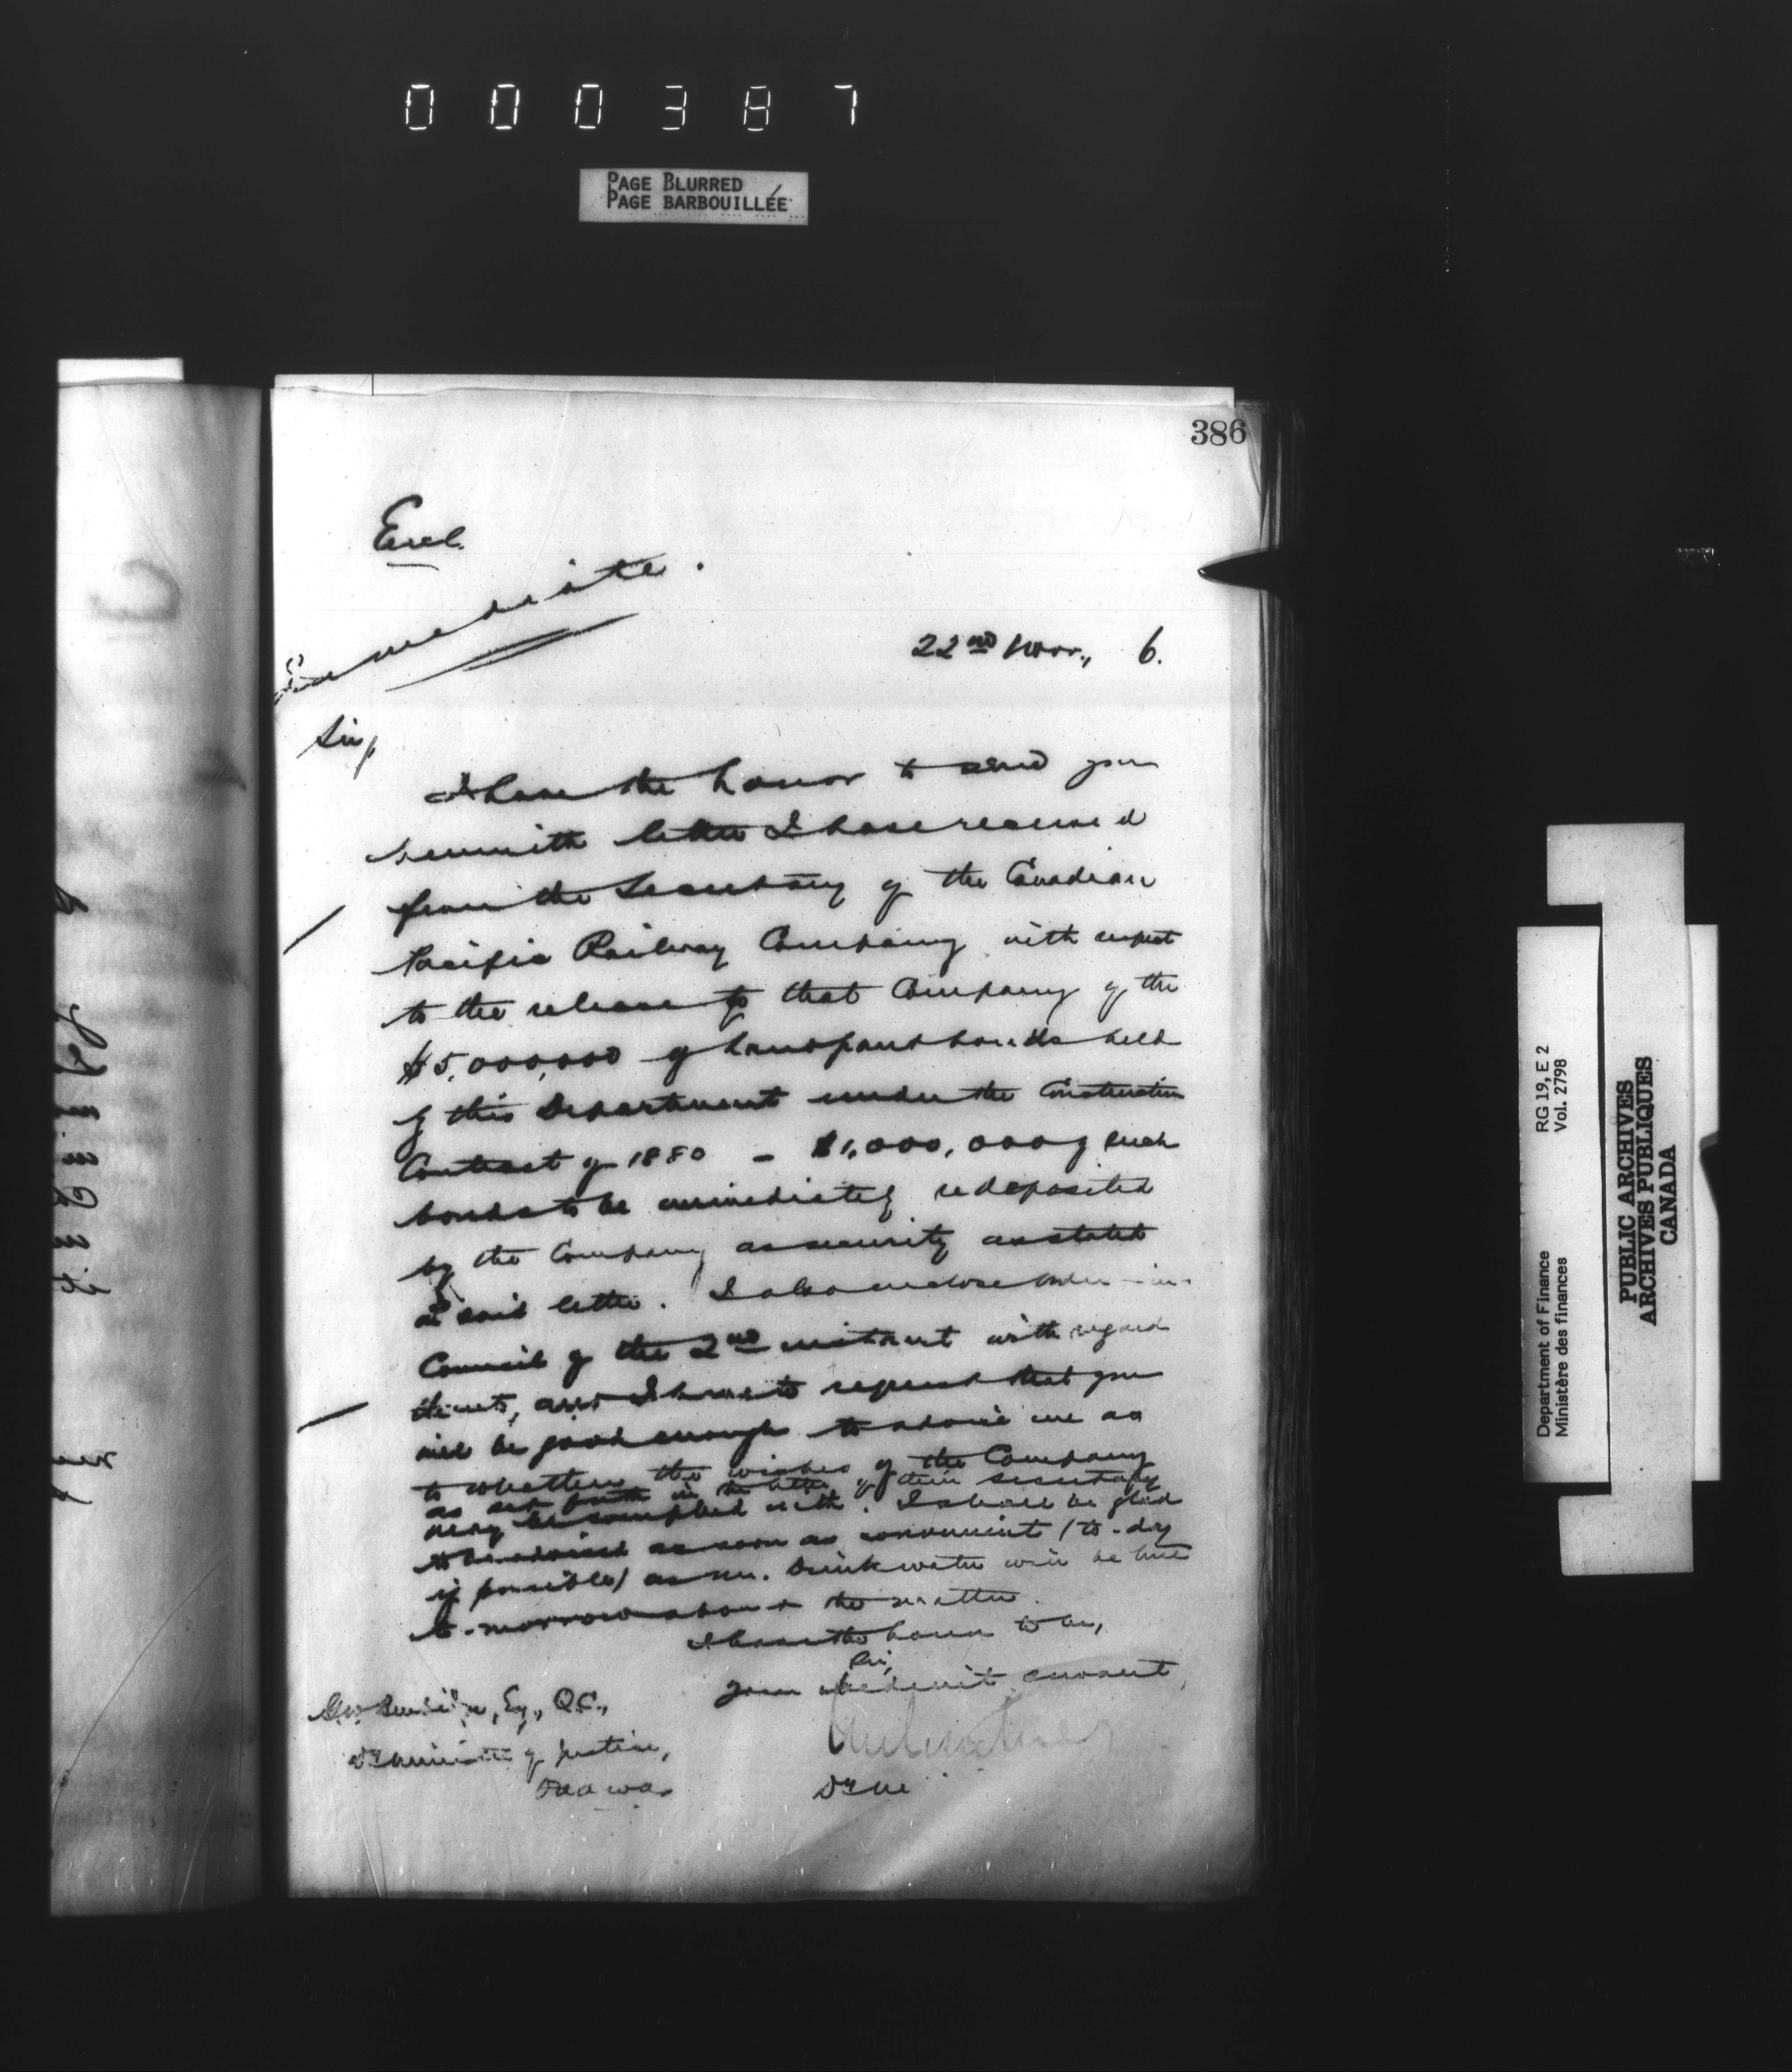 000387
PAGE BLURRED
PAGE BARBOUILLÉE
386
Encl.
Immediate.
22nd Nov., 6.
Sir,
I have the honor to send you
herewith letter I have received
from the Secretary of the Canadian
Pacific Railway Company with respect
to the release to that Company of the
$5,000,000 of land grant bonds held
by this Department under the Construction
Contract of 1880 - $1,000,000 of such
bonds to be immediately redeposited
by the Company as security as stated
in said letter. I also enclose Order-in-
Council of the 2nd instant with regard
thereto, and I have to request that you
will be good enough to advise me as
to whether the wishes of the Company
as set forth in the letter of their secretary
may be complied with. I shall be glad
to be advised as soon as convenient (to-day
if possible) as Mr. Drinkwater will be here
to-morrow about the matter.
I have the honor to be,
Sir,
Your obedient servant,
G.W. Burbidge, Esq., Q.C.,
D. Minister of Justice,
Ottawa
Department of Finance
Ministère des finances
RG 19, E 2
Vol. 2798
PUBLIC ARCHIVES
ARCHIVES PUBLIQUES
CANADA